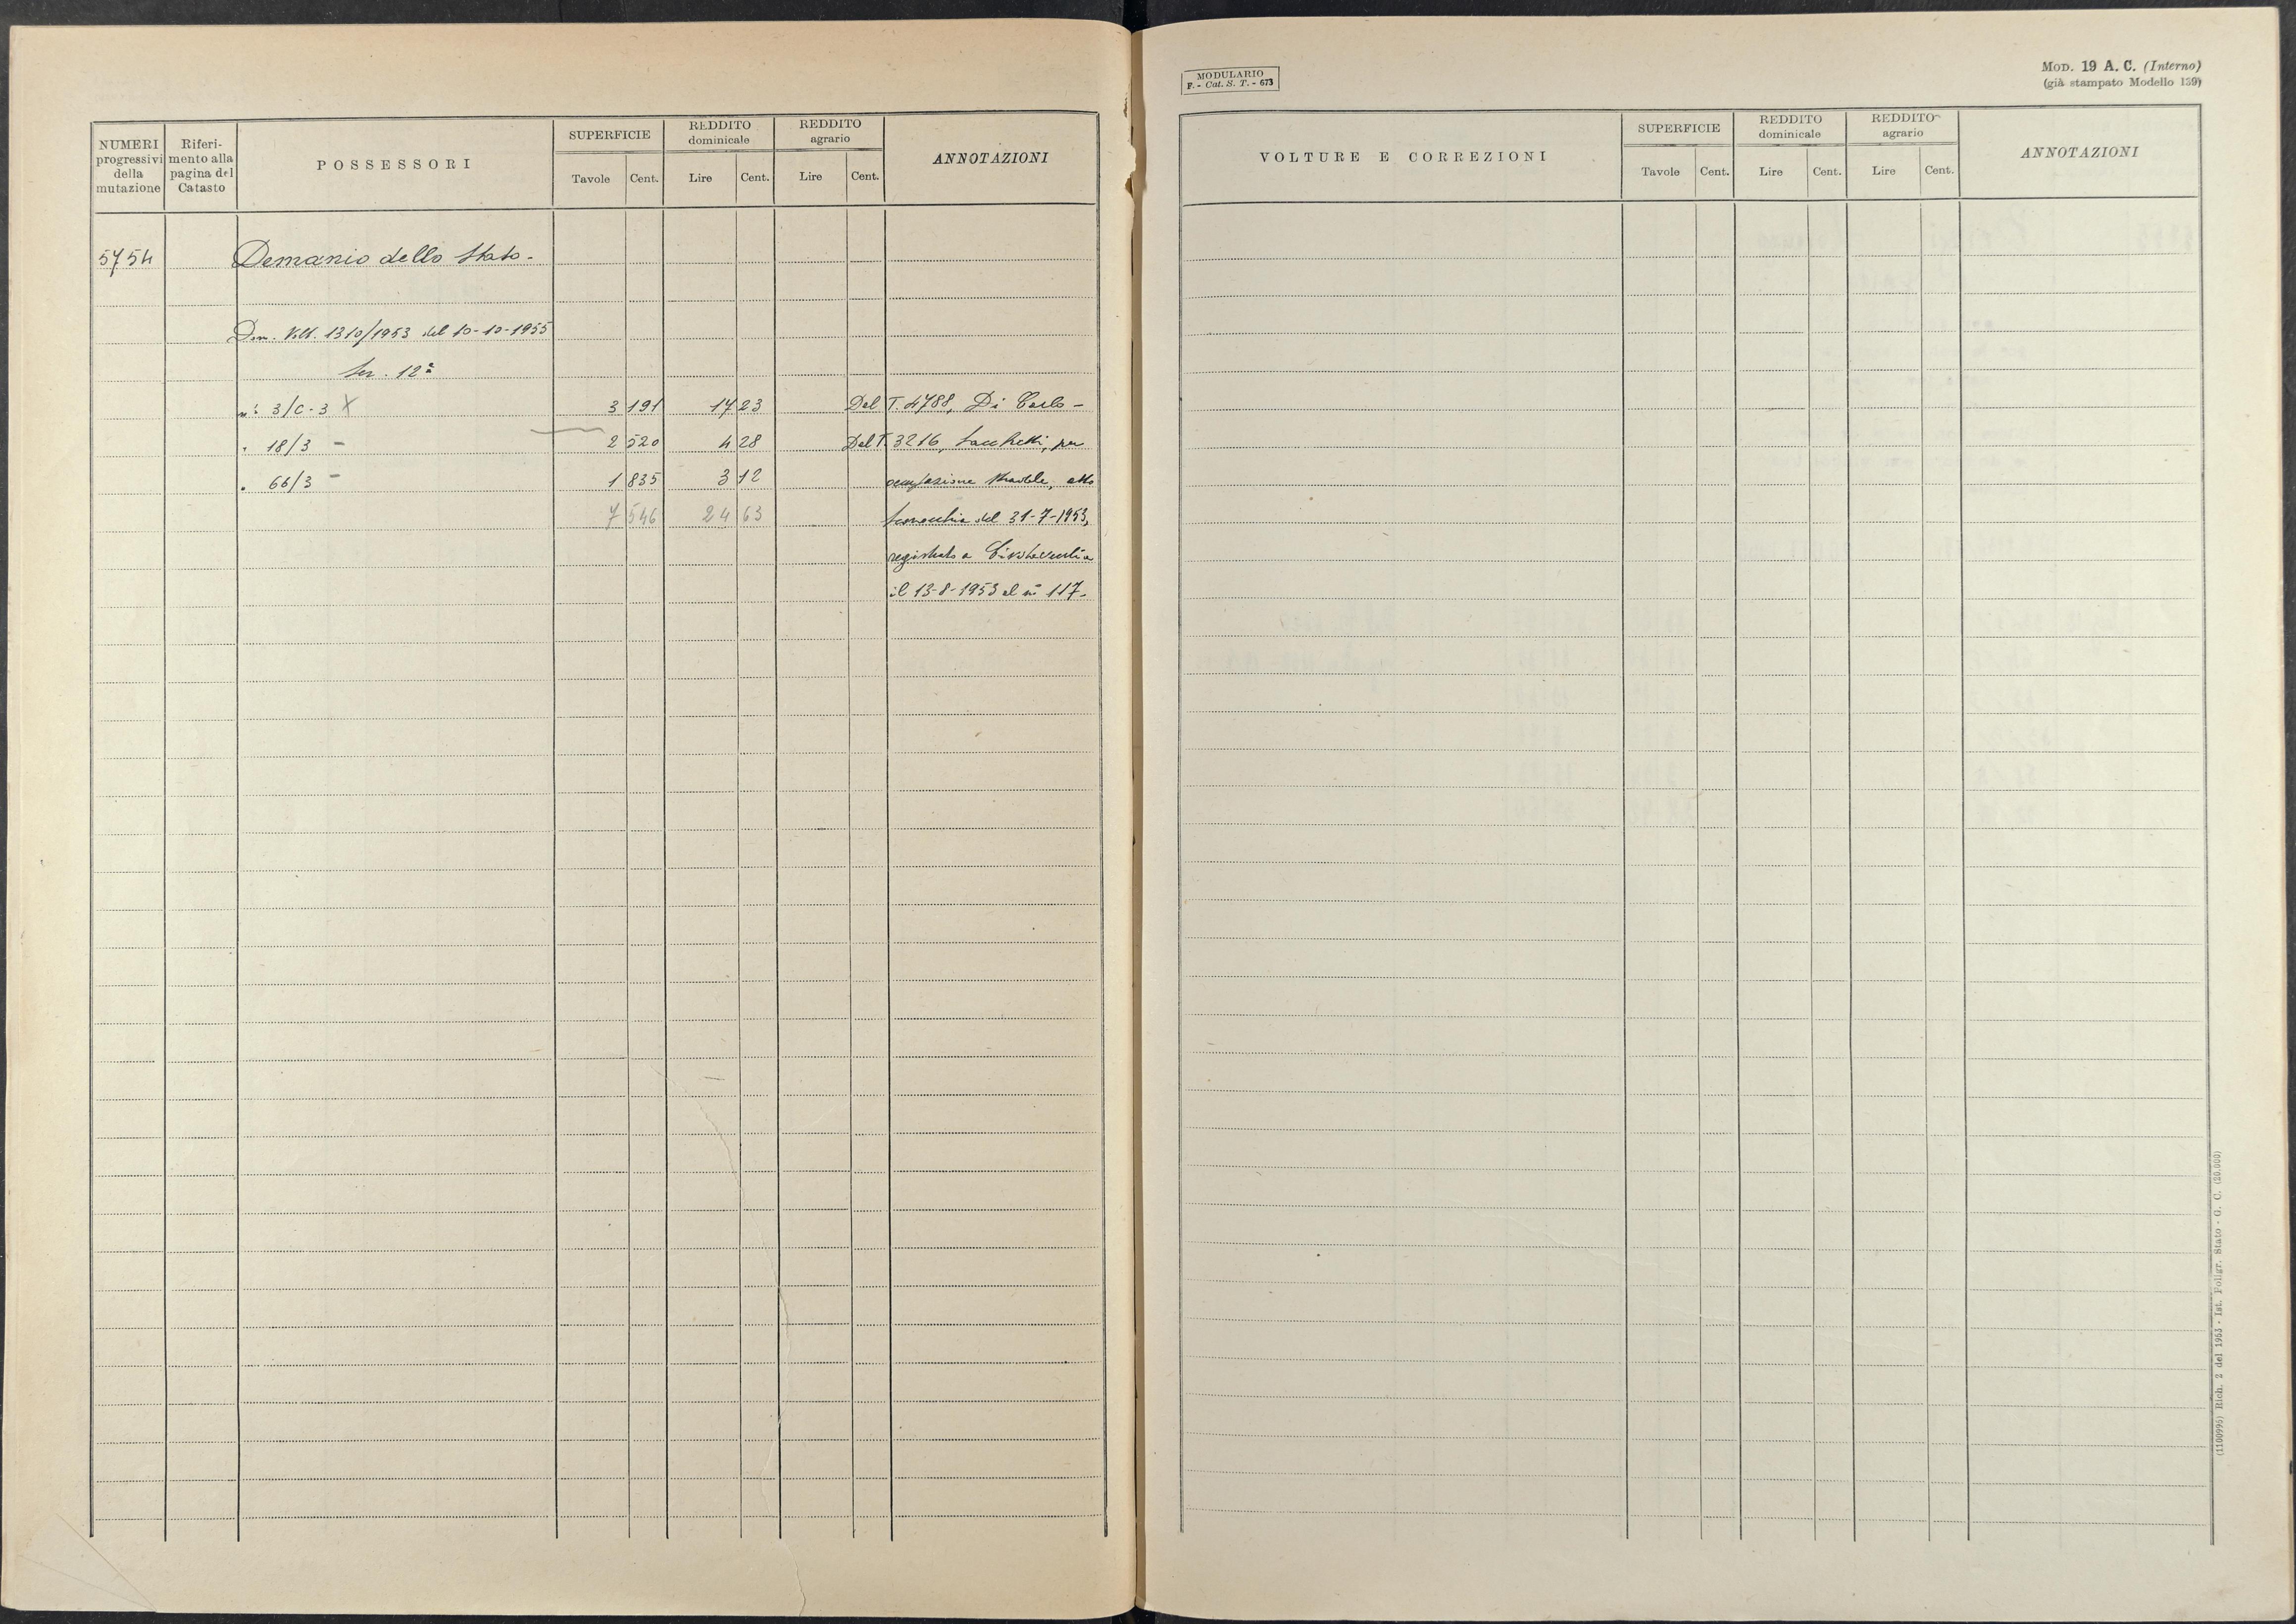 NUMERI progressivi della mutazione
Riferimento alla pagina del Catasto
POSSESSORI
SUPERFICIE
Tavole Cent.
REDDITO dominicale
Lire Cent.
REDDITO agrario
Lire Cent.
ANNOTAZIONI
5754 Demanio dello Stato -
Dom. Volt. 1310/1953 del 10-10-1955
Ser. 12ª
n.i 3/C-3 X 3 191 17 23 Dal T. 4788, Di Carlo -
" 18/3 - 2 520 4 28 Dal T. 3216, Sacchetti, per
" 66/3 - 1 835 3 12 occupazione stradale, atto
7 546 24 63 del 31-7-1953,
registrato a Civitavecchia
il 13-8-1953 al n° 117-
MODULARIO
F. - Cat. S. T. - 673
MOD. 19 A. C. (Interno)
(già stampato Modello 139)
VOLTURE E CORREZIONI
SUPERFICIE
Tavole Cent.
REDDITO dominicale
Lire Cent.
REDDITO agrario
Lire Cent.
ANNOTAZIONI
(1100995) Rich. 2 del 1953 - Ist. Poligr. Stato - G. C. (20.000)